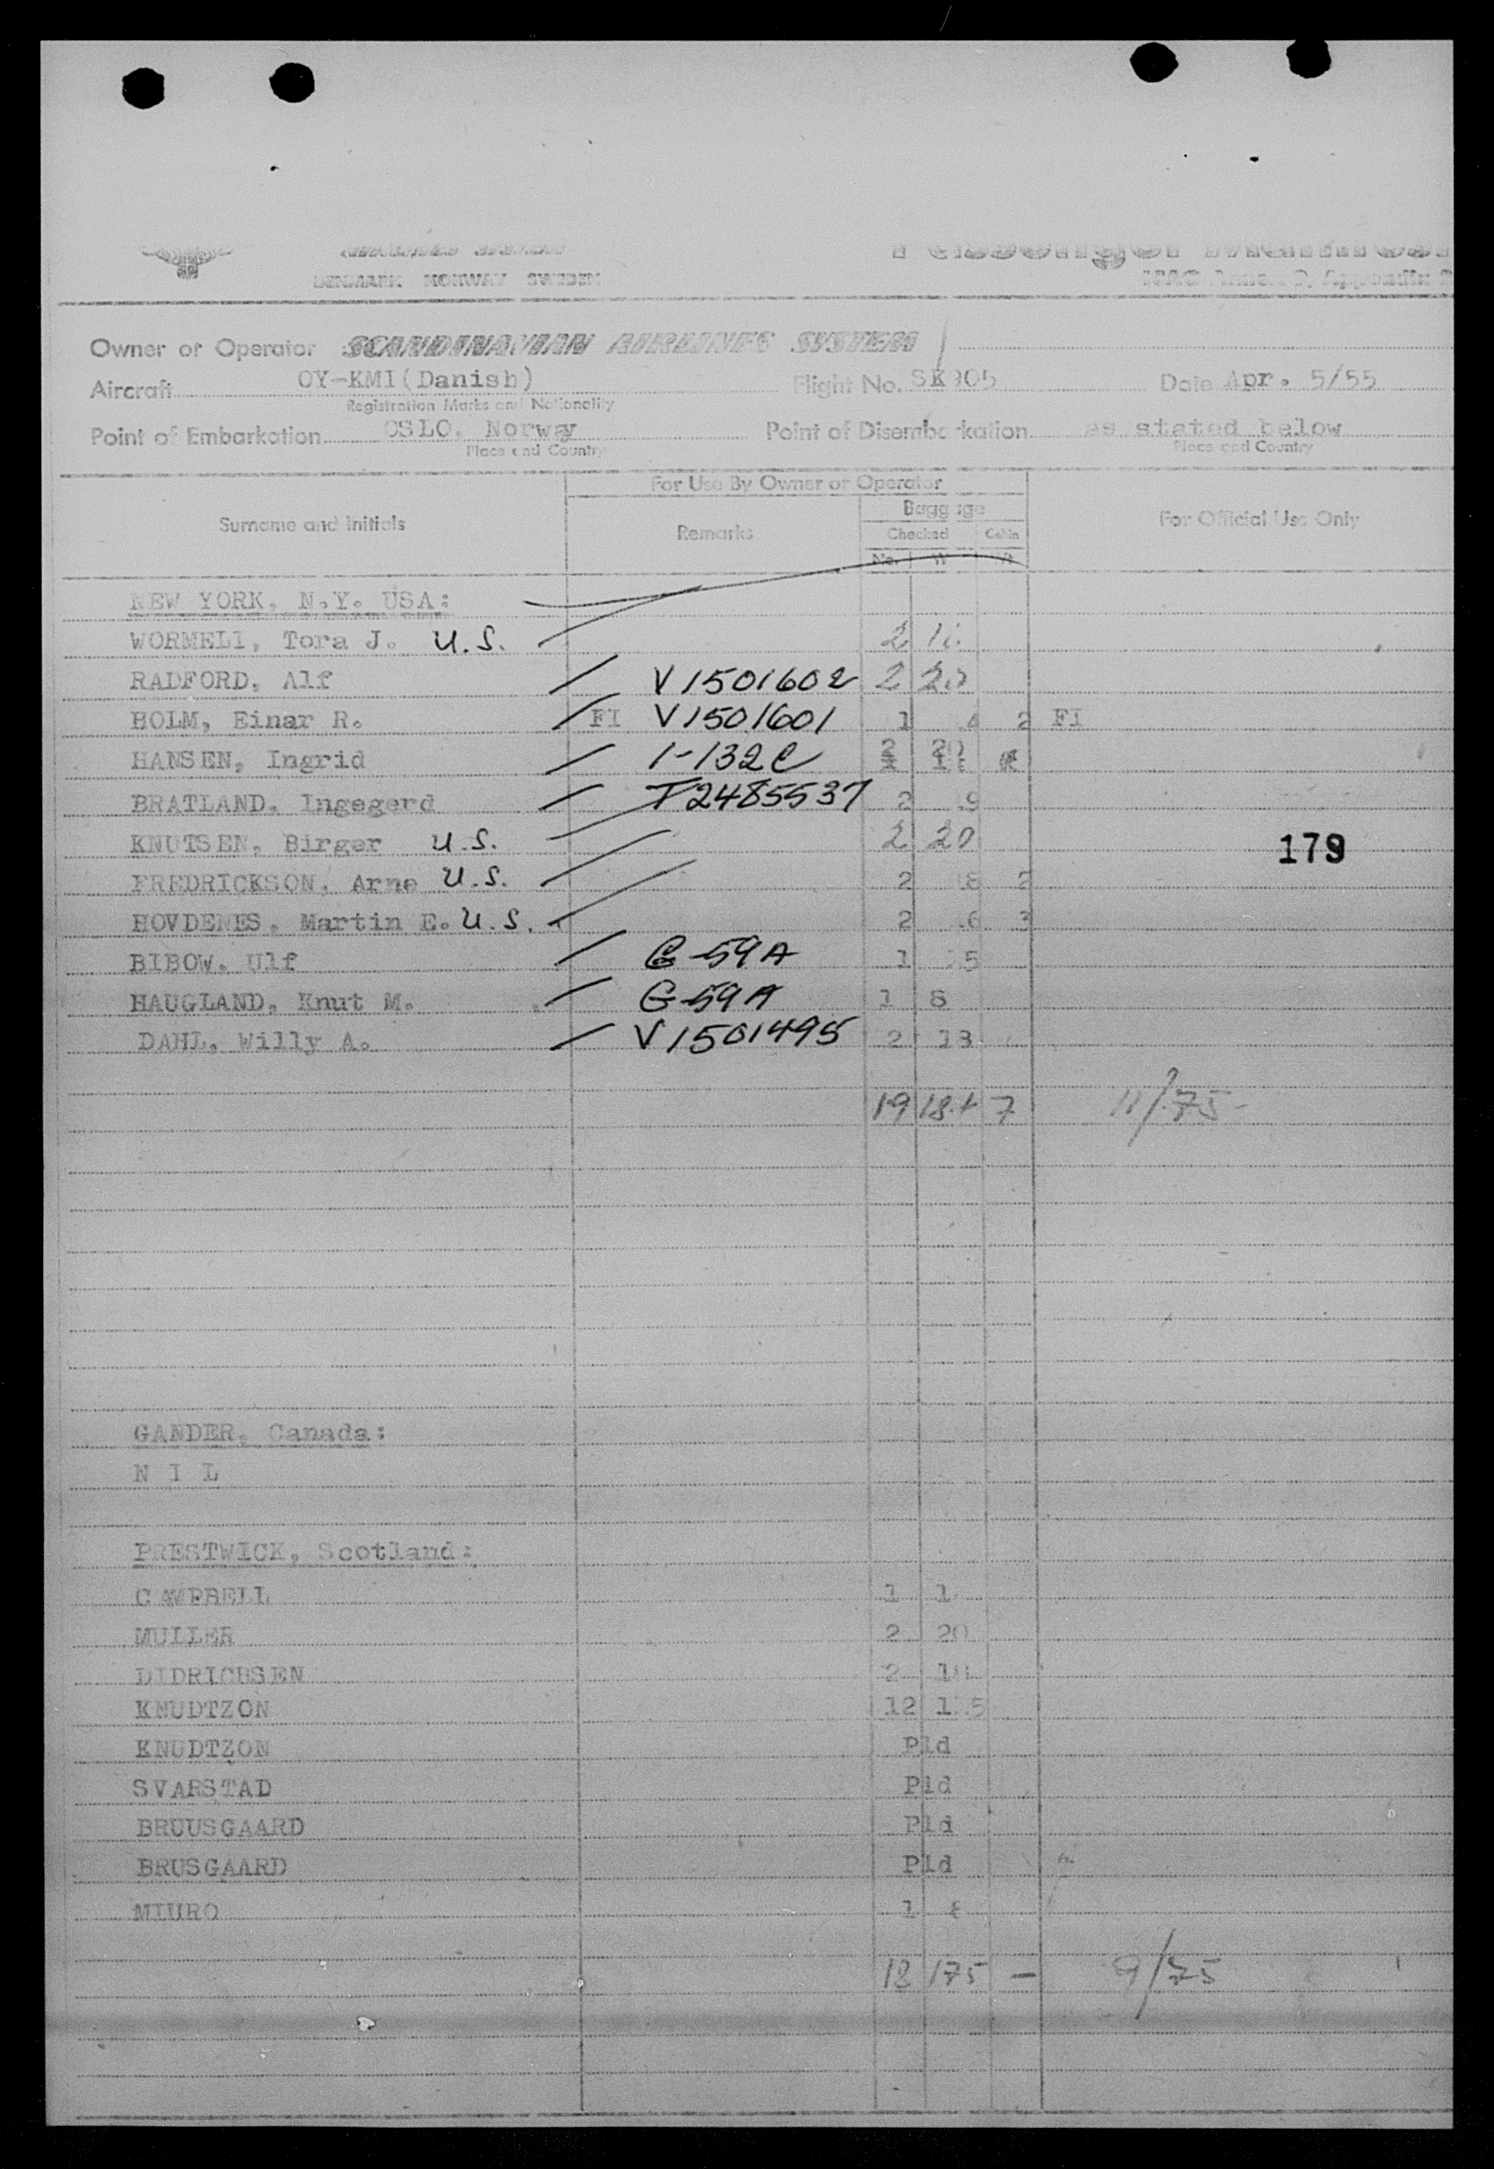 AIRLINES SYSTEM Passenger Manifest
DENMARK NORWAY SWEDEN ICAO Annex 9, Appendix
Owner or Operator SCANDINAVIAN AIRLINES SYSTEM
Aircraft OY-KMI(Danish) Flight No. SK905 Date Apr. 5/55
Registration Marks and Nationality
Point of Embarkation OSLO, Norway Point of Disembarkation as stated below
Place and Country Place and Country
For Use By Owner or Operator
Surname and initials Remarks Baggage For Official Use Only
Checked Cabin
No. W
NEW YORK, N.Y. USA:
WORMELI, Tora J. U.S. 2
RADFORD, Alf V1501602 2 20
HOLM, Einar R. FI V1501601 1 2 FI
HANSEN, Ingrid 1-132C 2 20
BRATLAND, Ingegerd T2485537 2
KNUTSEN, Birger U.S. 2 20
179
FREDRICKSON, Arne U.S. 2 2
HOVDENES, Martin E. U.S. 2 3
BIBOW, Ulf G-59A 1
HAUGLAND, Knut M. G-59A 1 8
DAHL, Willy A. V1501495 2 18
19 184 7 11/75-
GANDER, Canada:
N I L
PRESTWICK, Scotland:
CAMPBELL 1
MULLER 2 20
DIDRICHSEN 2
KNUDTZON 12
KNUDTZON Pld
SVARSTAD Pld
BRUUSGAARD Pld
BRUSGAARD Pld
MIURO 1 8
18 175 - 9/75